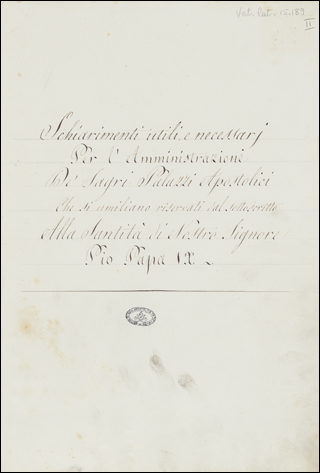 Vat. lat. 15189
II
Schiarimenti utili e necessarj
Per l'Amministrazione
De' Sagri Palazzi Apostolici
Che si umiliano riservati dal sottoscritto
Alla Santità di Nostro Signore
Pio Papa IX